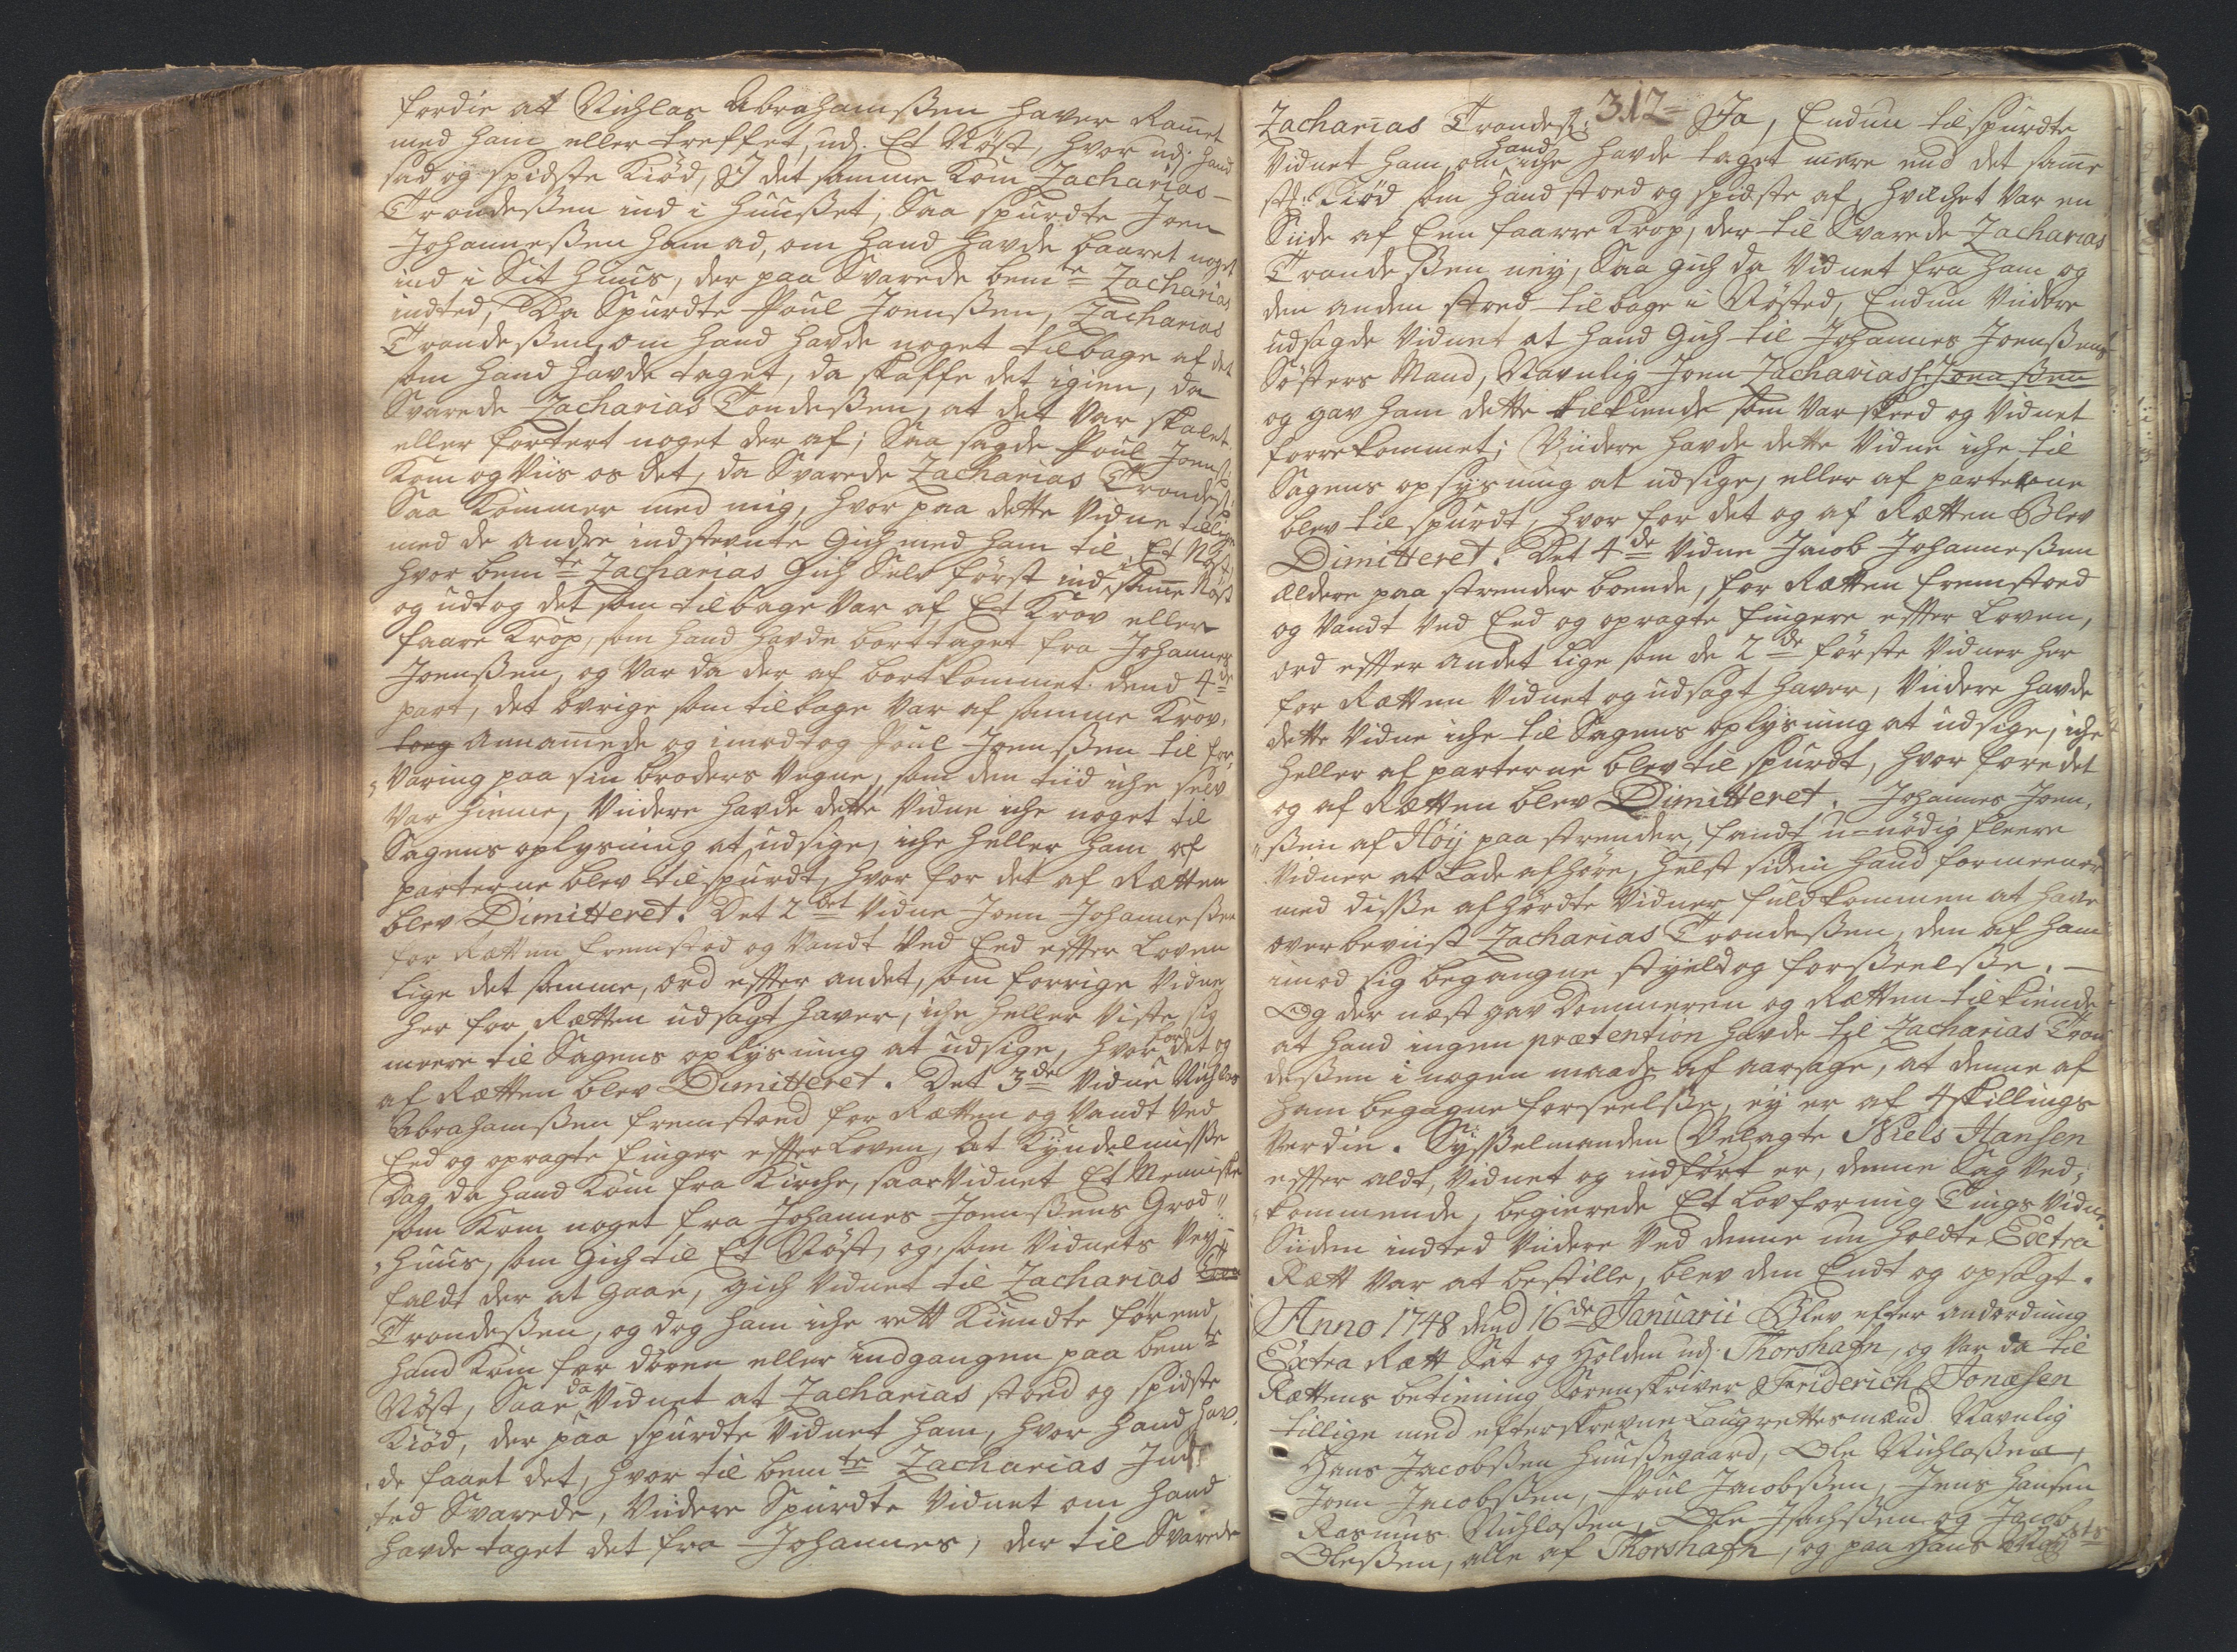 fordie at Nichlas Abrahamsßen haver Ramet
med ham eller treffet, udj. Et Nöst, hvor udj hand
sad og spidste Kiöd, I det samme Kom Zacharias
Trondesßen ind i Huußet, Saa spurdte Joen
Johannesßen ham ad, om Hand havde baaret noget
ind i Sit Huus, der paa Svarede bemte Zacharias
indted, Da Spurdte Poul Joensßen, Zacharias
Trondesßen, om Hand havde noget tilbage af det
som Hand havde taget, da skaffe det igien, da
Svarede Zacharias Tondesßen, at det Var skalet
eller fortert noget der af; Saa sagde Poul Joens:
Kom og Viis os det, da Svarede Zacharias Trondes:
Saa Kommer med mig, hvor paa dette Vidne tillige
med de andre indstevnte Gich med ham til Et Nöst,
hvor bemte Zacharias Gich Selv först ind i same Nöst
og udtog det som tilbage Var af Et Krov eller
faare Krop, som hand havde borttaget fra Johannes
Joensßen, og Var da der af bortkommet dend 4de
part, det övrige som tilbage Var af samme Krov,
toeg Annamede og imodtog Poul Joensßen til for,
,,Varing paa sin broders Vegne, som den tiid iche selv
Var Hieme, Viidere havde dette Vidne iche noget til
Sagens oplysning at udsige, iche heller ham af
parterne blev tilspurdt, hvor for det af Rætten
blev Dimitteret. Det 2det Vidne Joen Johannesßen
for Rætten fremstod og Vandt Ved Eed effter Loven
Lige det samme, ord effter andet, som forrige Vidne
her for Rætten udsagt haver, iche heller Viste sig
meere til Sagens oplysning at udsige, hvor for det og
af Rætten blev Dimitteret. Det 3de Vidne Nichlas
Abrahamsßen fremstoed for Rætten og Vandt Ved
Eed og opragte finger effter Loven, at Kyndelmisße
Dag da hand Kom fra Kirche, saae Vidnet Et Meniske
som Kom noget fra Johannes Joensßens Grod,,
,,Huus, som Gich til Et Nöst, og som Vidnets Vey
faldt der at Gaae, gich Vidnet til Zacharias Tron
Trondesßen, og dog ham iche rett Kiendte för end
hand Kom for dören eller indgangen paa bemte
Nöst, Saae da Vidnet at Zacharias stoed og spidste
Kiöd, der paa spurdte Vidnet ham, hvor hand hav,
,,de faaet det, hvor til bemte Zacharias Ind
,,ted Svarede, Viidere Spurdte Vidnet om hand
havde taget det fra Johannes, der til Svarede
312
Zacharias Trondesß: Ja, Endnu tilspurdte
Vidnet ham, om hand iche havde taget mere end det same
st: Kiöd som Hand stoed og spidste af, hvilchet Var en
Siide af Een faarre Krop, der til Svarede Zacharias
Trondesßen ney, Saa gich da Vidnet fra ham og
den anden stoed tilbage i Nöstet, Endnu Viidere
udsagde Vidnet at hand Gich til Johannes Joensßens
Sösters Mand, Navnlig Joen Zachariass: Joensßen
og gav ham dette tilkiende som Var skeed og Vidnet
forrekommet; Viidere havde dette Vidne iche til
Sagens oplysning at udsige, eller af parterne
blev tilspurdt, hvor for det og af Rætten Blev
Dimitteret. Det 4de Vidne Jacob Johannesßen
Ældere paa strender boende, for Rætten fremstoed
og Vandt Ved Eed og opragte fingere effter Loven,
ord effter andet lige som de 2de förste Vidner her
for Rætten Vidnet og udsagt haver, Viidere havde
dette Vidne iche til Sagens oplysning at udsige, iche
heller af parterne blev tilspurdt, hvor fore det
og af Rætten blev Dimitteret. Johannes Joen,
,,sßen af Höy paa strender, fandt u-nödig fleere
Vidner at Lade afhöre, helst siden hand formeener
med disße afhördte Vidner fuldkommen at have
overbeviist Zacharias Trondesßen, den af ham
imod sig begangne styeld og forßeelße. —
Og der næst gav Dommeren og Rætten tilkiende
at hand ingen prætention havde til Zacharias Tron
desßen i nogen maade af aarsage, at denne af
ham begagne forseelße, ey er af 4 skillings
Verdie. Sysßelmanden Velagte Niels Hansen
effter aldt, Vidnet og indfört er, denne Sag Ved,
,,kommende, begierede Et Lovforming Tings Vidne.
Siiden indted Viidere Ved denne nu holdte Extra
Rætt Var at bestille, blev den Endt og opsagt.
Anno 1748 dend 16de Januarii Blev efter anordning
Extra Rætt Sat og Holden udj. Thorshafn, og Var da til
Rættens betiening Sorenskriver Friderich Jonæsen
tillige med efterskrevne Laugrettesmænd. Navnlig
Hans Jacobsßen Huusßegaard, Ole Nichlasßen,
Joen Jacobsßen, Poul Jacobsßen, Jens Hansen
Rasmus Nichlasßen, Ole Isachsßen og Jacob
Olesßen, alle af Thorshafn, og paa Hans Mayts